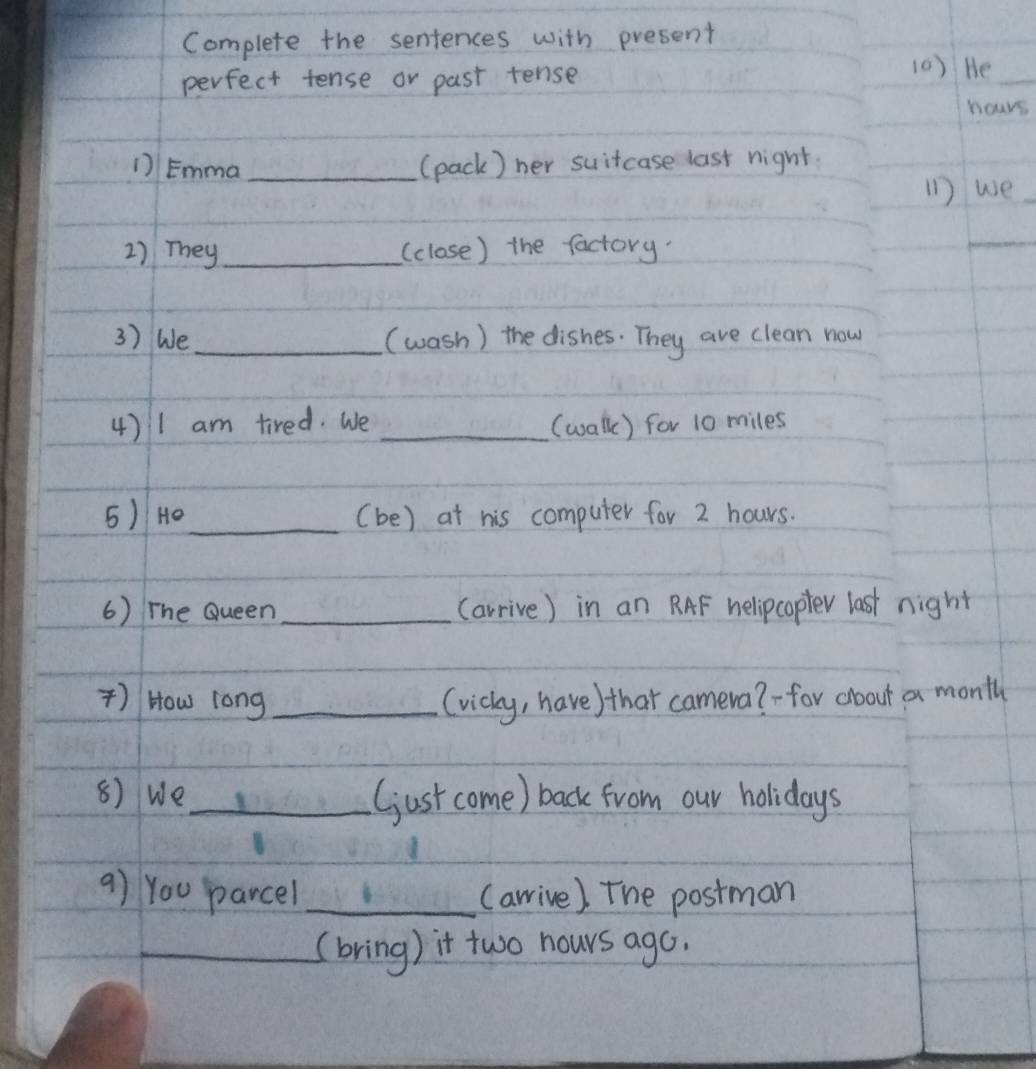 Complete the sentences with present
perfect tense or past tense
1) Emma __________ (pack) her suitcase last night.
2) They __________ (close) the factory.
3) We __________ (wash) the dishes. They are clean now
4) I am tired. We __________ (walk) for 10 miles
5) He __________ (be) at his computer for 2 hours.
6) The Queen __________ (arrive) in an RAF helipcopter last night
7) How long __________ (vicky, have) that camera? - for about a month
8) We __________ (just come) back from our holidays
9) You parcel __________ (arrive). The postman
__________ (bring) it two hours ago.
10) He
hours
11) We